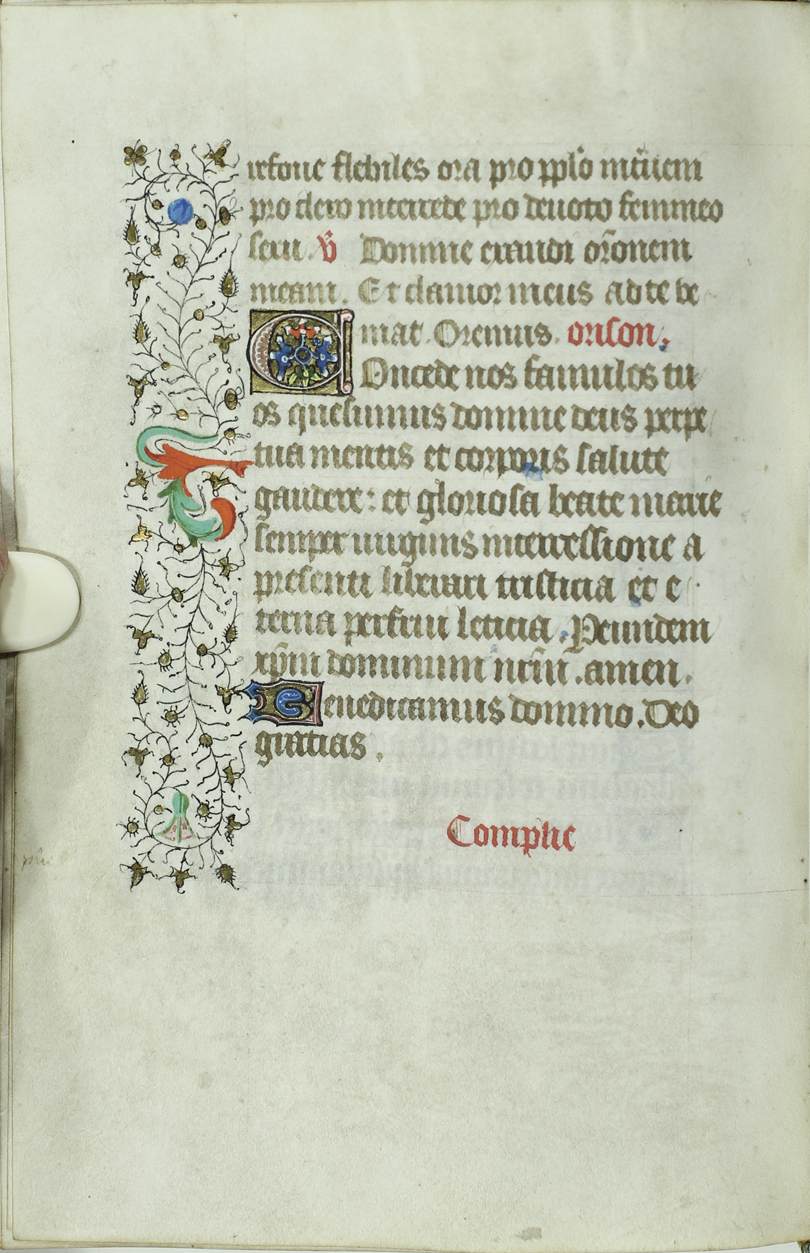 refoue flebiles ora pro pplo int̄ueni
pro clero intercede pro deuoto femineo
sexu. v̄ Domine exaudi or̄onem
meam. Et clamor meus ad te ve
niat. Oremus. orison.
Concede nos famulos tu
os quesumus domine deus perpe
tua mentis et corporis salute
gaudere: et gloriosa beate marie
semper uirginis intercessione a
presenti liberari tristicia et e
terna perfrui leticia. Per eundem
xp̄m dominum nr̄m. amen.
Benedicamus domino. Deo
gratias.
Complie